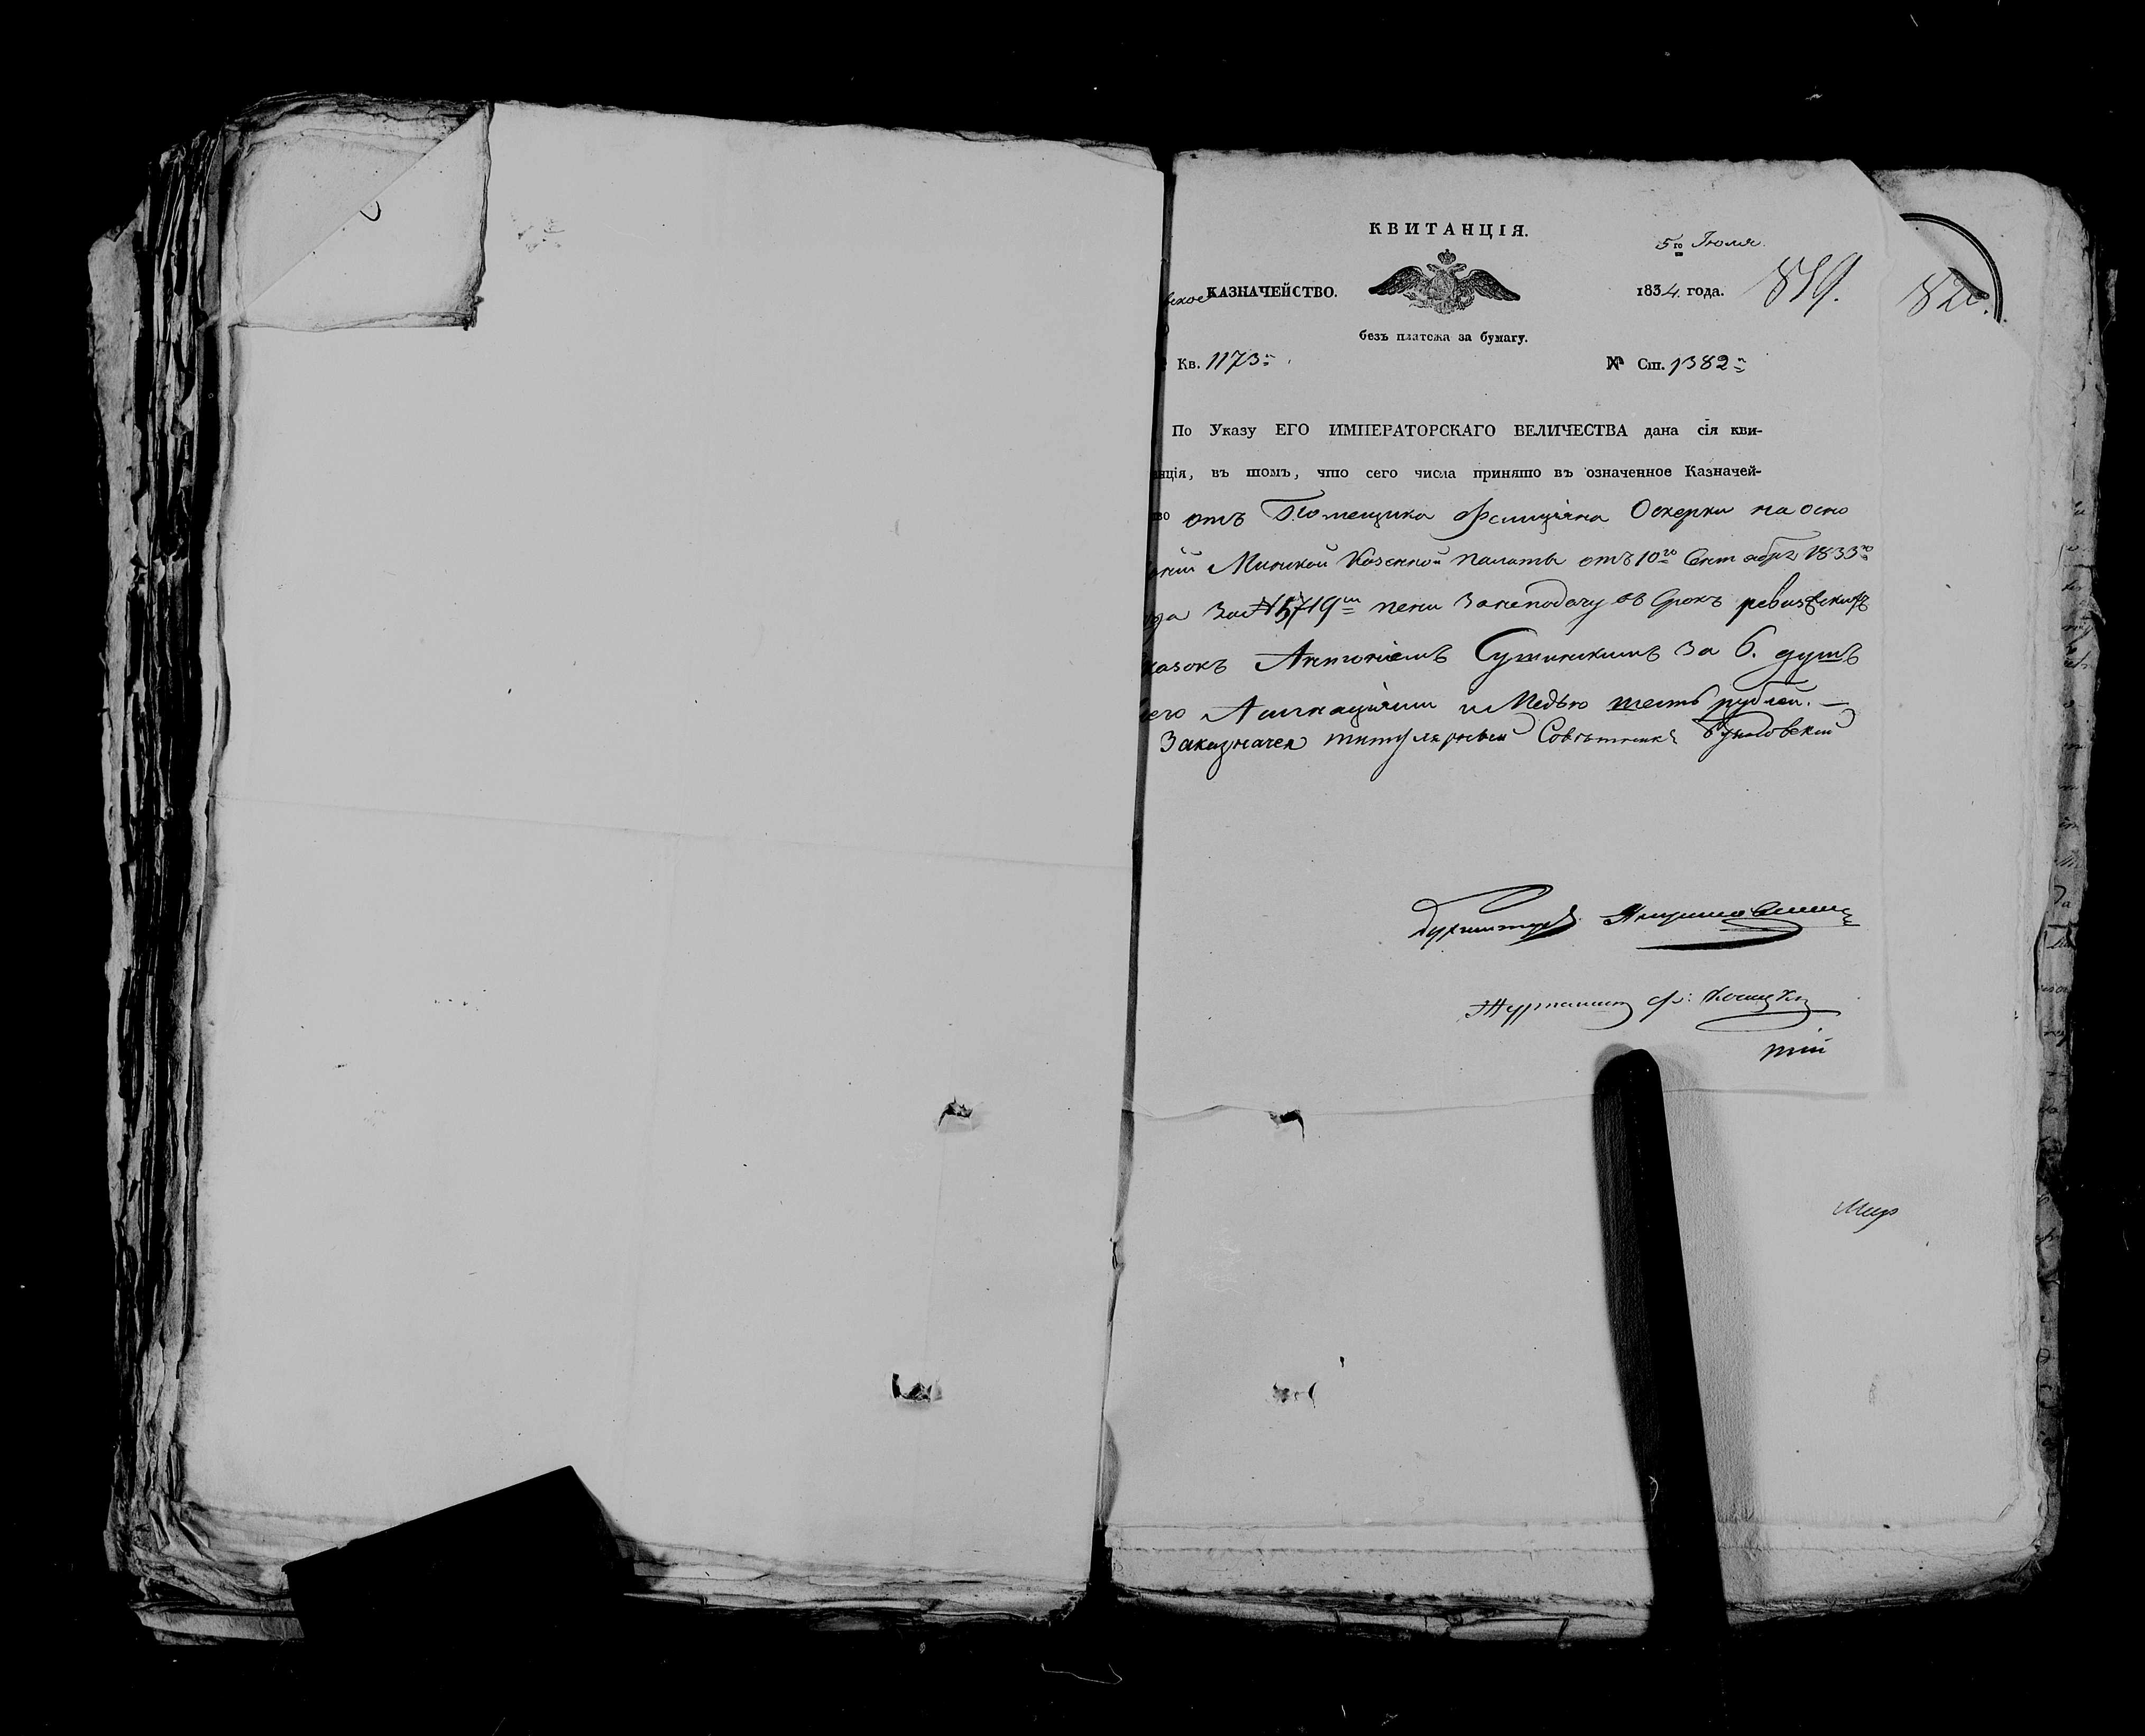 КВИТАНЦІЯ.
5го Июля
ское КАЗНАЧЕЙСТВО.
1834. года.
819.
820.
безъ платежа за бумагу.
Кв. 1173й
№ Ст. 1382й
По Указу ЕГО ИМПЕРАТОРСКАГО ВЕЛИЧЕСТВА дана сія кви-
нція, въ томъ, что сего числа принято въ означенное Казначей-
во отъ Помещика Фелиціяна Оскерки на осно
аніи Минской Казенной палаты отъ 10го Сентября 1833го
да за № 5719м пени за неподачу въ Срокъ ревизскихъ
казокъ Антоніемъ за 6. душъ
его Асигнаціями и Медью шесть рублей. —
За казначея титулярный Советникъ
Бухгалтеръ
Журналистъ Ф: